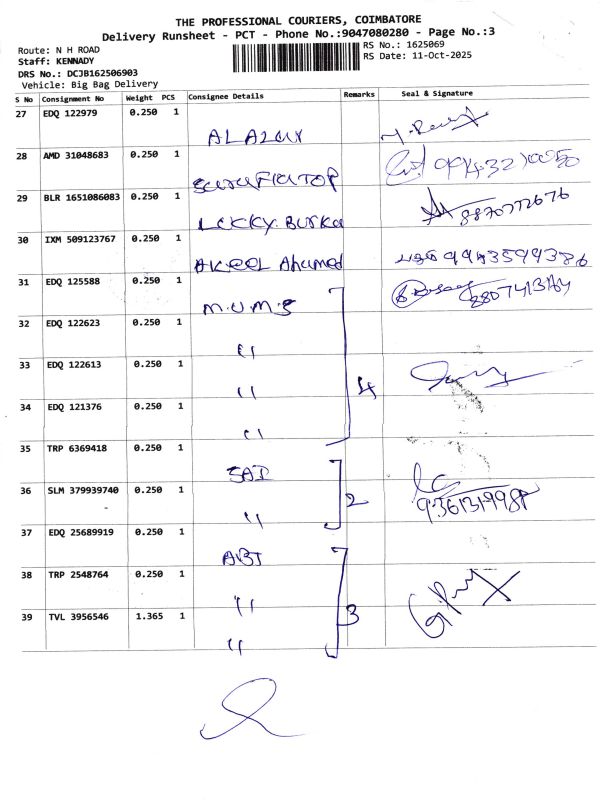 THE PROFESSIONAL COURIERS, COIMBATORE
Delivery Runsheet - PCT - Phone No.:9047080280 - Page No.:3
Route: N H ROAD
RS No.: 1625069
Staff: KENNADY
RS Date: 11-Oct-2025
DRS No.: DCJB162506903
Vehicle: Big Bag Delivery
S No Consignment No Weight PCS Consignee Details Remarks Seal & Signature
27 EDQ 122979 0.250 1
28 AMD 31048683 0.250 1
29 BLR 1651086083 0.250 1
LUCKY. BURKA 8870772676
30 IXM 509123767 0.250 1
AKEEL Ahamed 9943599386
31 EDQ 125588 0.250 1
M.U.M.S
32 EDQ 122623 0.250 1
"
33 EDQ 122613 0.250 1
" 4
34 EDQ 121376 0.250 1
"
35 TRP 6369418 0.250 1
SAI
36 SLM 379939740 0.250 1
" 2
37 EDQ 25689919 0.250 1
ABT
38 TRP 2548764 0.250 1
"
39 TVL 3956546 1.365 1
" 3